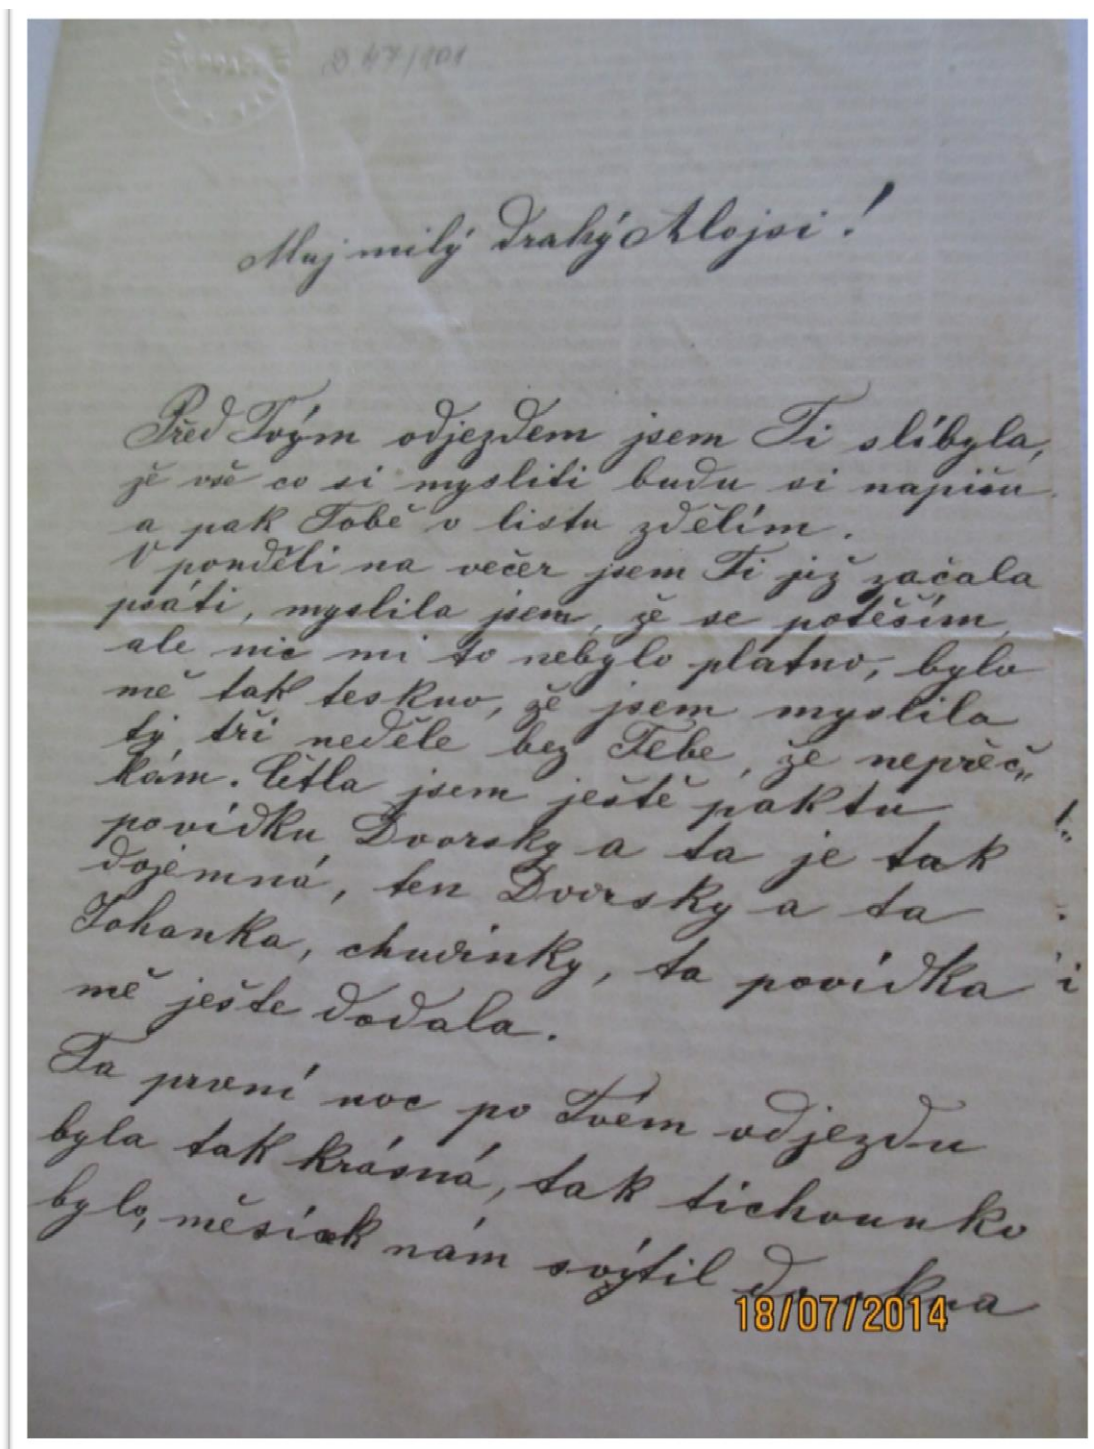 D 47/101
Muj milý drahý Alojsi!
Před Tvým odjezdem jsem Ti slíbyla,
že vše co si mysliti budu si napíšu
a pak Tobě v listu zdělím.
V ponděli na večer jsem Ti již začala
psáti, myslila jsem, že se potěším,
ale nic mi to nebylo platno, bylo
mě tak teskno, že jsem myslila
ty tři neděle bez Tebe, že nepřeč„
kám. Četla jsem ještě pak tu
povídku Dvorsky a ta je tak
dojemná, ten Dvorsky a ta
Johanka, chudinky, ta povídka
mě ješte dodala.
Ta první noc po Tvém odjezdu
byla tak krásná, tak tichounko
bylo, měsíček nám svýtil do okna
18/07/2014